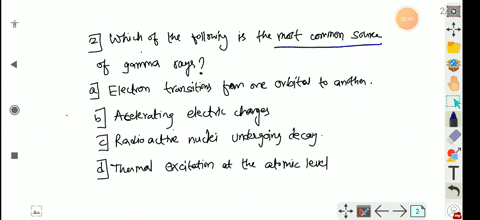 2] Which of the following is the most common source
of gamma rays?
a] Electron transitions from one orbital to another.
b] Accelerating electric charges
c] Radioactive nuclei undergoing decay.
d] Thermal excitation at the atomic level
T
2